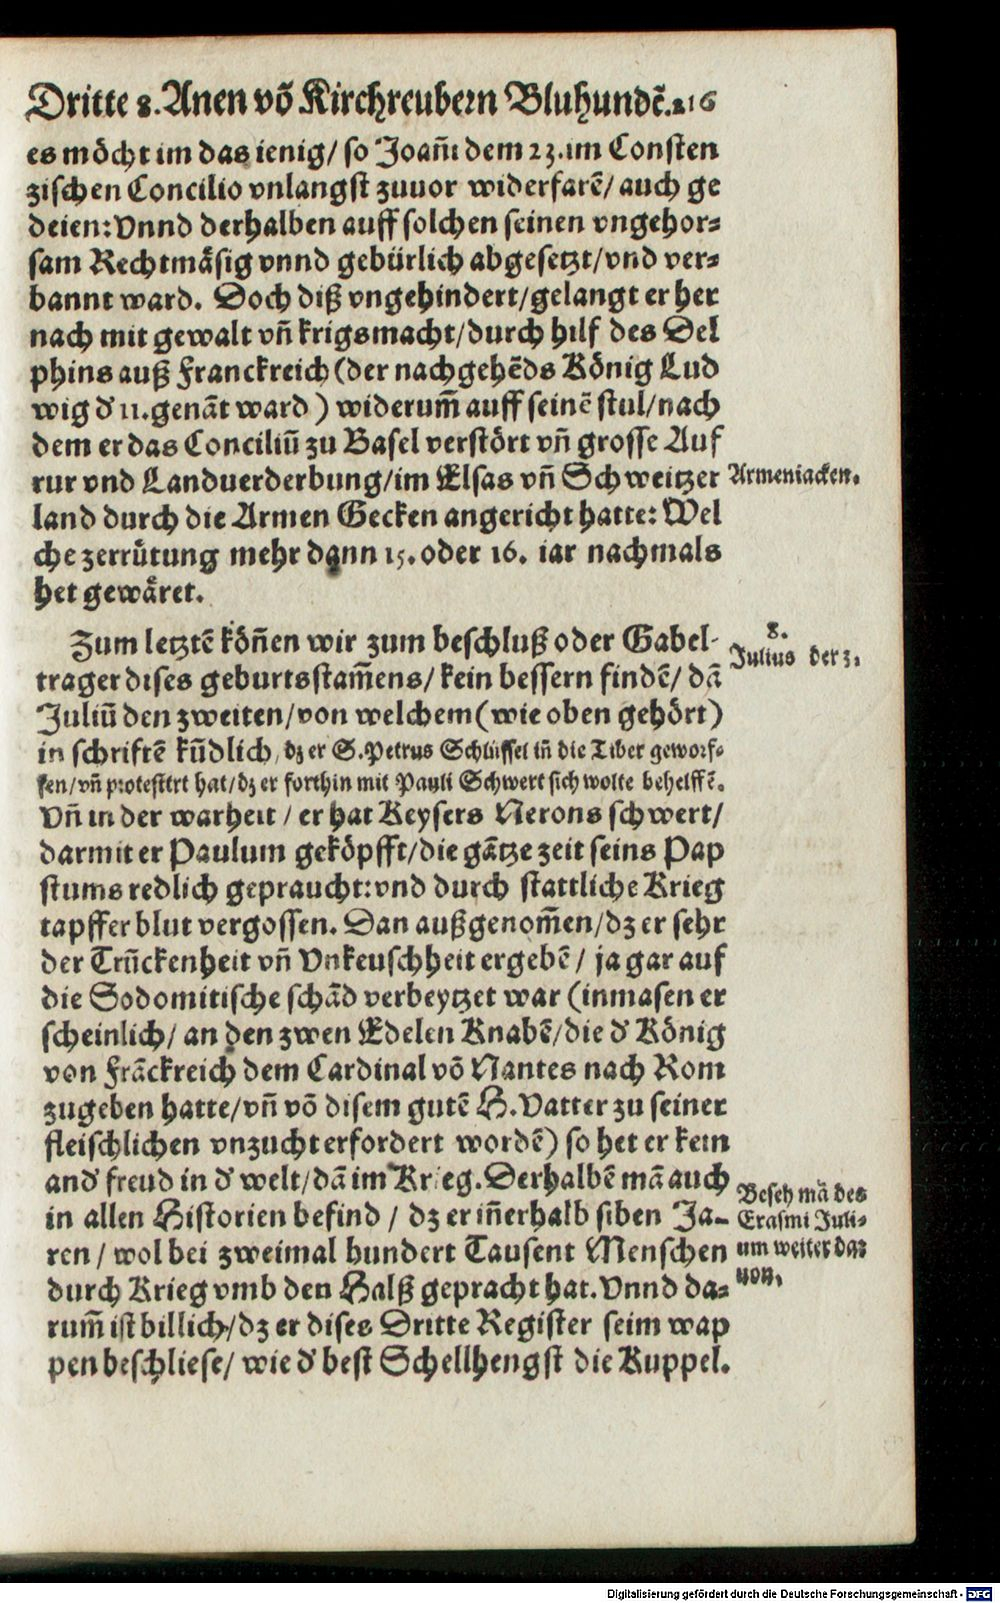 Dritte 8. Anen võ Kirchreubern Bluhundẽ. 216
es möcht im das ienig/ so Joañi dem 23. im Consten
zischen Concilio vnlangst zuuor widerfarẽ/ auch ge
deien: Vnnd derhalben auff solchen seinen vngehor⸗
sam Rechtmäsig vnnd gebürlich abgesetzt/ vnd ver⸗
bannt ward. Doch diß vngehindert/ gelangt er her
nach mit gewalt vñ krigsmacht/ durch hilf des Del
phins auß Franckreich (der nachgehẽds König Lud
wig d' 11. genãt ward) widerum̃ auff seinẽ stul/ nach
dem er das Conciliũ zu Basel verstört vñ grosse Auf
rur vnd Landuerderbung/ im Elsas vñ Schweitzer
Armeniacken.
land durch die Armen Gecken angericht hatte: Wel
che zerrütung mehr dann 15. oder 16. iar nachmals
het gewäret.
Zum letztẽ köñen wir zum beschluß oder Gabel-
8.
Julius der 2.
trager dises geburtsstam̃ens/ kein bessern findẽ/ dã
Juliũ den zweiten/ von welchem (wie oben gehört)
in schriftẽ kũdlich, dz er S. Petrus Schlüssel iñ die Tiber geworf⸗
fen/ vñ protestirt hat/ dz er forthin mit Pauli Schwert sich wolte behelffẽ.
Vñ in der warheit/ er hat Keysers Nerons schwert/
darmit er Paulum geköpfft/ die gãtze zeit seins Pap
stums redlich gepraucht: vnd durch stattliche Krieg
tapffer blut vergossen. Dan außgenom̃en/ dz er sehr
der Trũckenheit vñ Vnkeuschheit ergebẽ/ ja gar auf
die Sodomitische schãd verbeytzet war (inmasen er
scheinlich/ an den zwen Edelen Knabẽ/ die d' König
von Frãckreich dem Cardinal võ Nantes nach Rom
zugeben hatte/ vñ võ disem gutẽ H. Vatter zu seiner
fleischlichen vnzucht erfordert wordẽ) so het er kein
and' freud in d' welt/ dã im Krieg. Derhalbẽ mã auch
in allen Historien befind/ dz er iñerhalb siben Ja-
ren/ wol bei zweimal hundert Tausent Menschen
durch Krieg vmb den Halß gepracht hat. Vnnd da⸗
rum̃ ist billich/ dz er dises Dritte Register seim wap
pen beschliese/ wie d' best Schellhengst die Kuppel.
Beseh mã des
Erasmi Juli⸗
um weiter da⸗
uon.
Digitalisierung gefördert durch die Deutsche Forschungsgemeinschaft - DFG